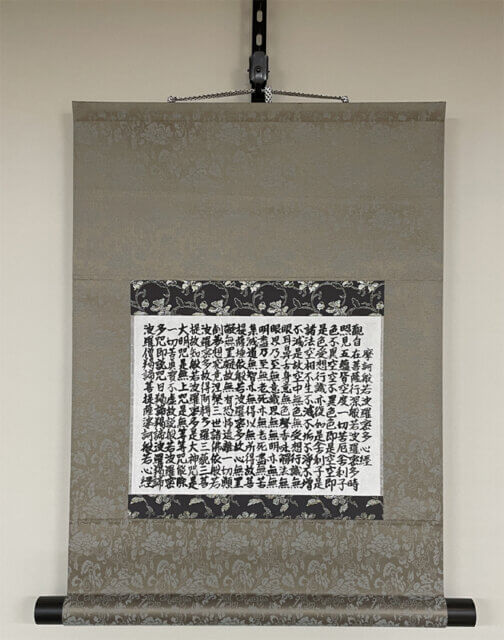 摩訶般若波羅蜜多心経
觀自在菩薩行深般若波羅蜜多時
照見五蘊皆空度一切苦厄舎利子
色不異空空不異色色即是空空即
是色受想行識亦復如是舎利子是
諸法空相不生不滅不垢不浄不増
不減是故空中無色無受想行識無
眼耳鼻舌身意無色聲香味觸法無
眼界乃至無意識界無無明亦無無
明盡乃至無老死亦無老死盡無苦
集滅道無智亦無得以無所得故菩
提薩埵依般若波羅蜜多故心無罣
礙無罣礙故無有恐怖遠離一切顛
倒夢想究竟涅槃三世諸佛依般若
波羅蜜多故得阿耨多羅三藐三菩
提故知般若波羅蜜多是大神咒是
大明咒是無上咒是無等等咒能除
一切苦真實不虚故説般若波羅蜜
多咒即説咒曰羯諦羯諦波羅羯諦
波羅僧羯諦菩提薩婆訶般若心経